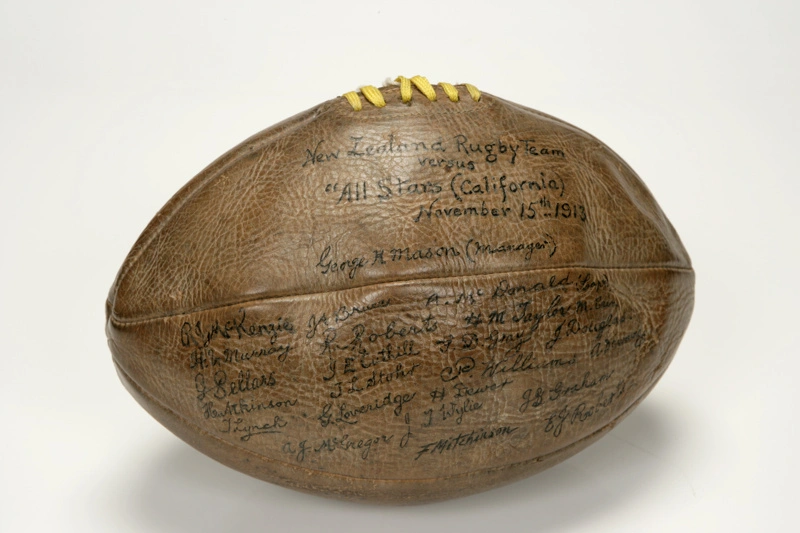 New Zealand Rugby Team
versus
"All Stars (California)
November 15th 1913
George H Mason (Manager)
R J McKenzie J A Bruce A. McDonald (Capt
H. S. Murray R. Roberts H. M. Taylor
J Sellars J E Cuthill F D Gray J Douglas
Hewkinson J L Stohr P Williams A Murray
T Lynch G. Loveridge H Dewar J B Graham
A J McGregor J T Wylie F Mitchinson E J Roberts